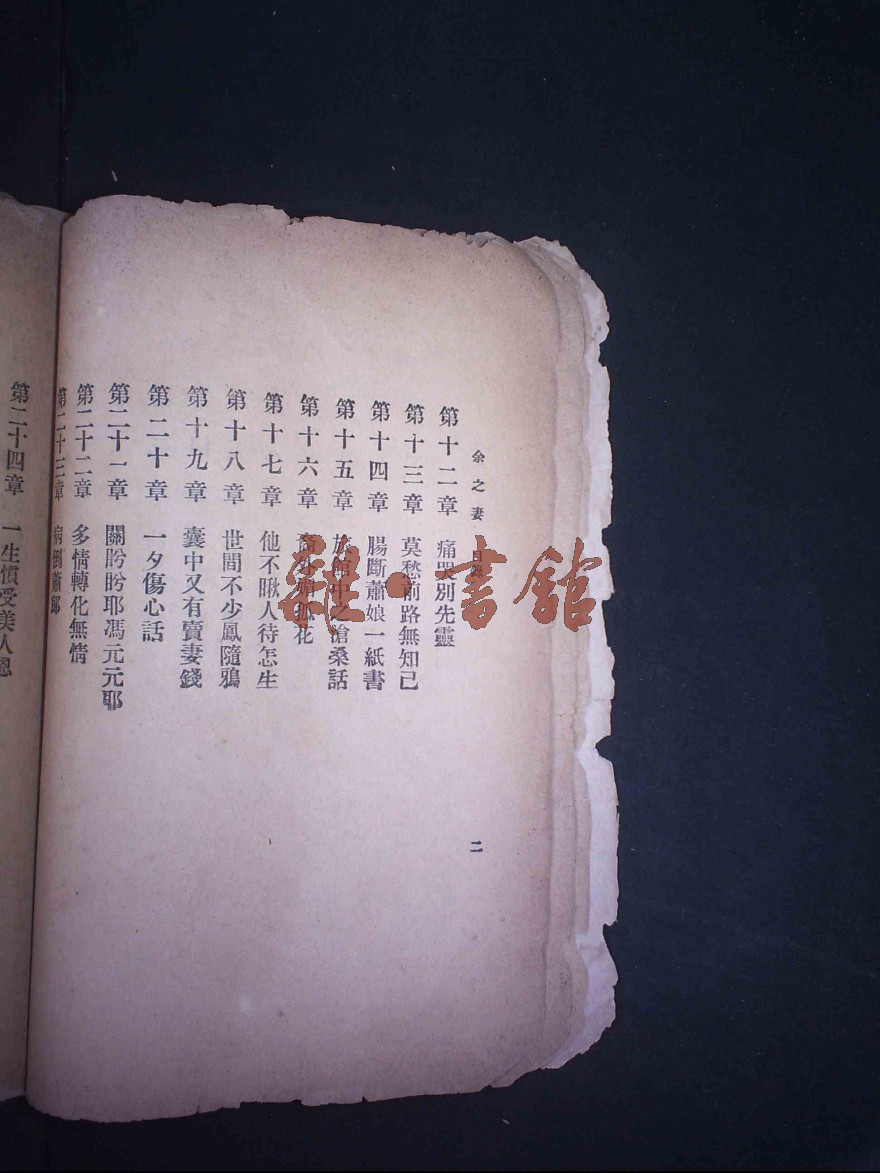 余之妻 目錄
第十二章 痛哭別先靈
第十三章 莫愁前路無知己
第十四章 腸斷蕭娘一紙書
第十五章 旅館中之滄桑話
第十六章 花
第十七章 他不瞅人待怎生
第十八章 世間不少鳳隨鴉
第十九章 囊中又有賣妻錢
第二十章 一夕傷心話
第二十一章 關盼盼耶馮元元耶
第二十二章 多情轉化無情
第二十三章 病倒蕭郎
第二十四章 一生慣受美人恩
二
雜·書館